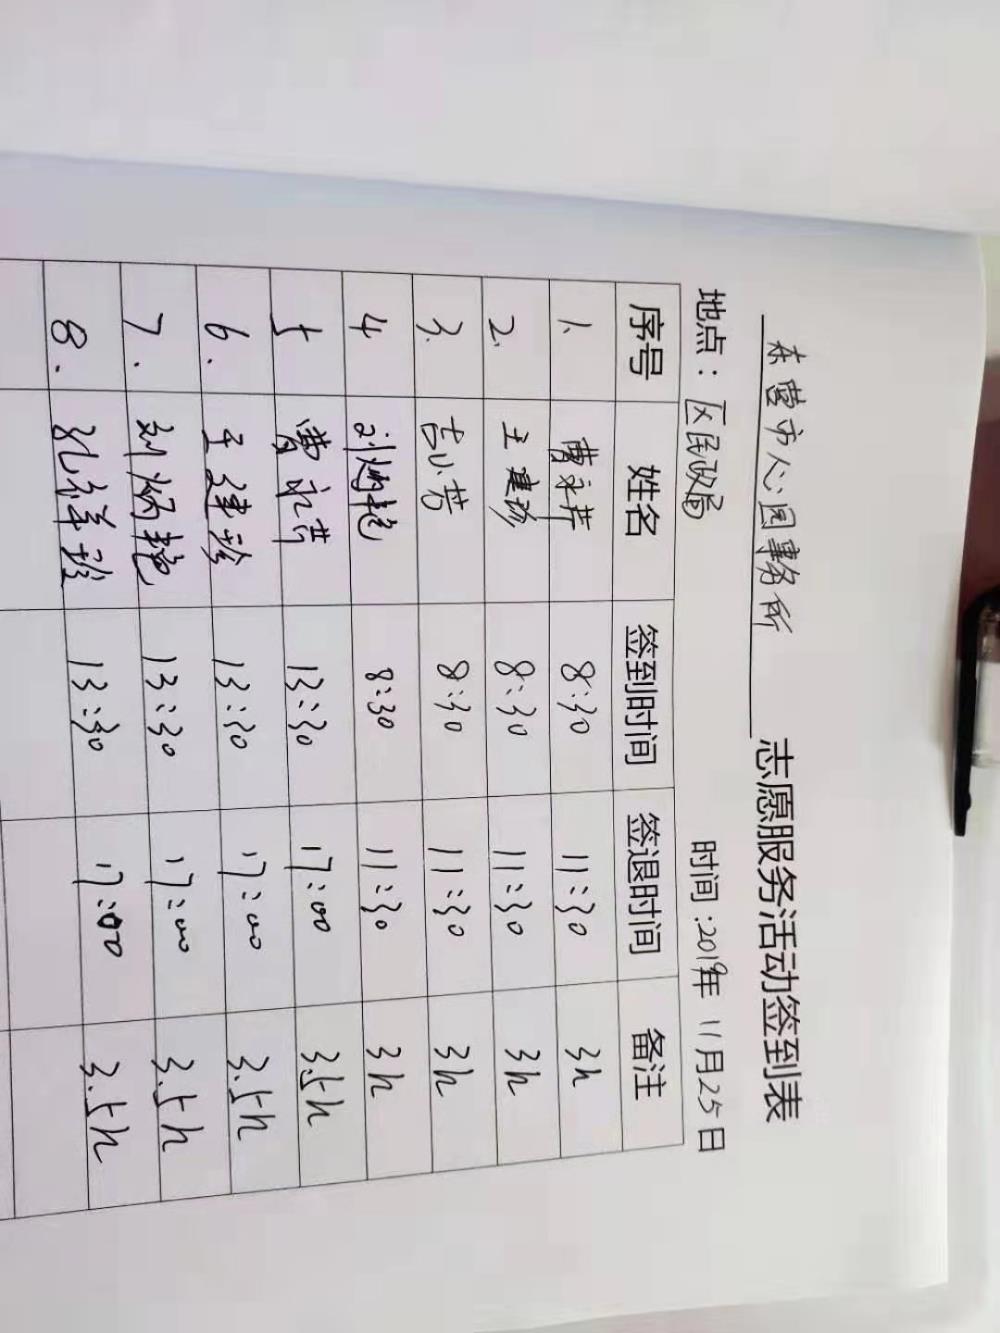 东营市心圆事务所 志愿服务活动签到表
地点：区民政局 时间：2019年 11月25日
序号 姓名 签到时间 签退时间 备注
1. 曹永芹 8:30 11:30 3h
2. 王建珍 8:30 11:30 3h
3. 吉小芳 8:30 11:30 3h
4 刘炳艳 8:30 11:30 3h
5 曹永芹 13:30 17:00 3.5h
6. 王建珍 13:30 17:00 3.5h
7. 刘炳艳 13:30 17:00 3.5h
8. 13:30 17:00 3.5h